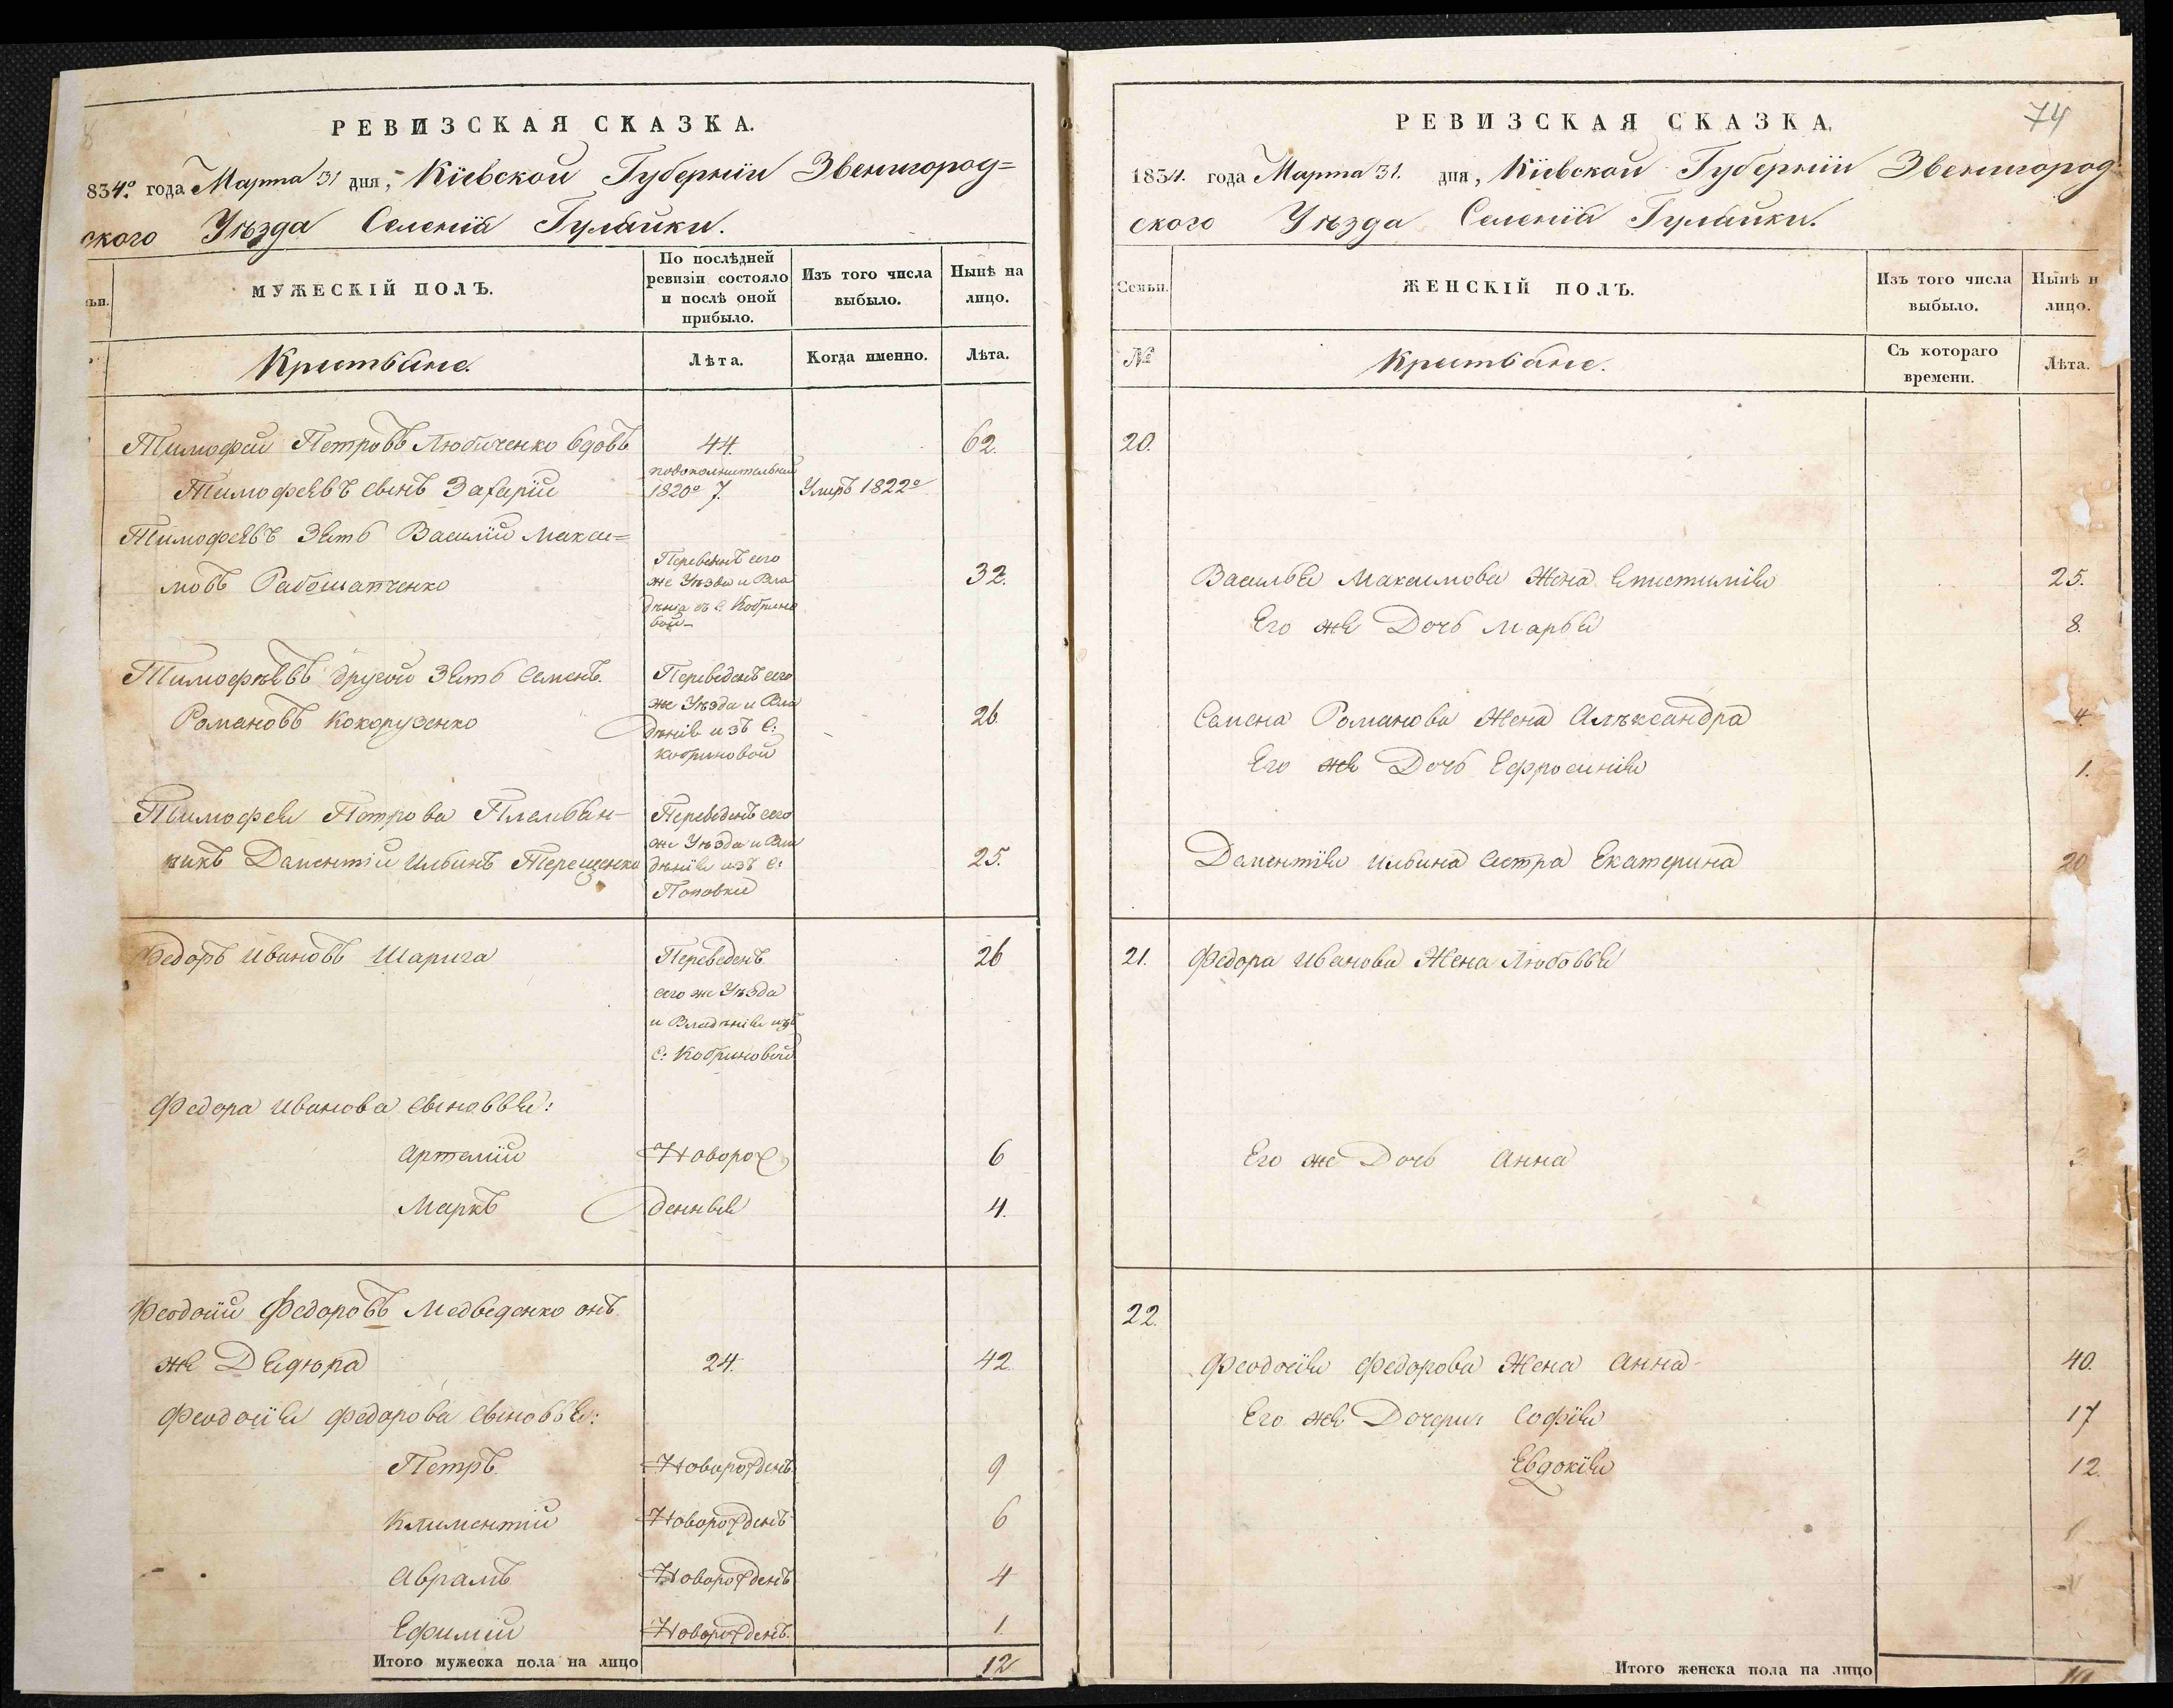 РЕВИЗСКАЯ СКАЗКА.
834го года Марта 31 дня, Кіевской Губерніи Звенигород=
ского Уѣзда Селенія Гулайки.
МУЖЕСКІЙ ПОЛЪ.
По послѣдней
ревизіи состояло
и послѣ оной
прибыло.
Изъ того числа
выбыло.
Нынѣ на
лицо.
Крестьяне.
Лѣта.
Когда именно.
Лѣта.
Тимофей Петровъ Любиченко вдовъ 44. 62.
Тимофеевъ сынъ Захарій 1820го 7. Умеръ 1822го
Тимофеевъ Зять Василій Макси=
мовъ
Переведенъ сего
же Уѣзда и Вла
дѣнія съ С. Кобрино
вой
32.
Тимофѣевъ другой Зять Семенъ
Романовъ Кокорузенко
Переведенъ сего
же Уѣзда и Вла
дѣнія изъ С:
Кобриновой
26
Тимофея Петрова Племян-
никъ Даментій Ильинъ Терещенко
Переведенъ сего
же Уѣзда и Вла
дѣнія изъ С:
Поповки
25.
Федоръ Ивановъ Шарига
Переведенъ
сего же Уѣзда
и Владѣнія изъ
С: Кобриновой
26
Федора Иванова сыновья:
Артемій Новорож 6
Маркъ денныя 4.
Феодосій Федоровъ Медведенко онъ
же Дедюра 24. 42
Феодосія Федорова сыновья:
Петръ Новорожденъ 9
Климентій Новорожденъ 6
Абрамъ Новорожденъ 4
Ефимій Новорожденъ. 1.
Итого мужеска пола на лицо 12
74
РЕВИЗСКАЯ СКАЗКА.
1834. года Марта 31. дня, Кіевской Губерніи Звенигород=
ского Уѣзда Селенія Гулайки.
Семьи.
ЖЕНСКІЙ ПОЛЪ.
Изъ того числа
выбыло.
Нынѣ н
лицо.
№
Крестьяне.
Съ котораго
времени.
Лѣта.
20.
Василья Максимова Жена Епистимія 25.
Его же Дочь Марья 8.
Семена Романова Жена Алѣксандра 4
Его же Дочь Ефросинія 1.
Даментія Ильина Сестра Екатерина 20
21. Федора Иванова Жена Любовья
Его же Дочь Анна 3
22.
Феодосія Федорова Жена Анна 40.
Его же Дочери: Софія 17
Евдокія 12.
Итого женска пола на лицо